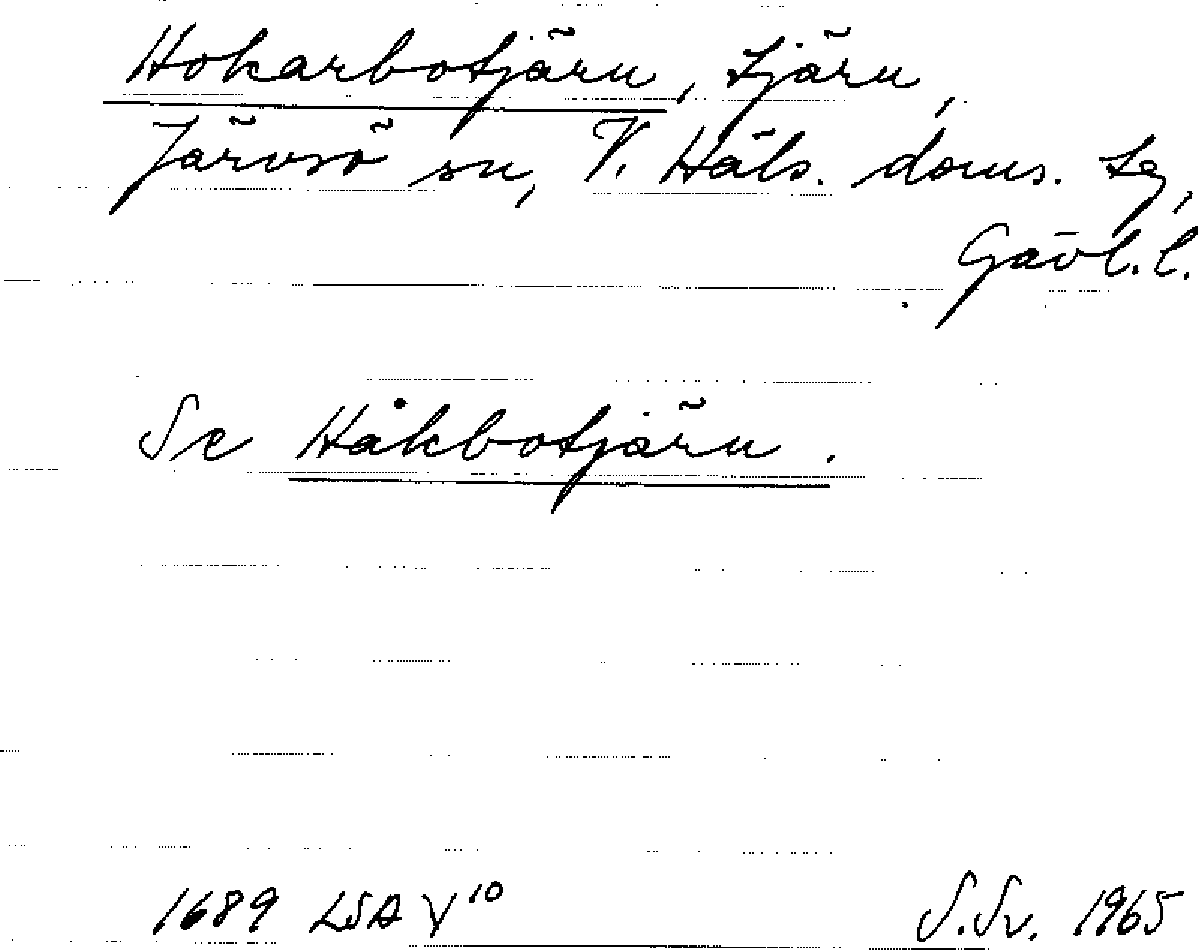 Hokarbotjärn, tjärn,
Järvsö sn, V. Häls. doms. tg,
Gävl.l.
Se Håkbotjärn.
1689 LSA V¹⁰ S.Sv. 1965